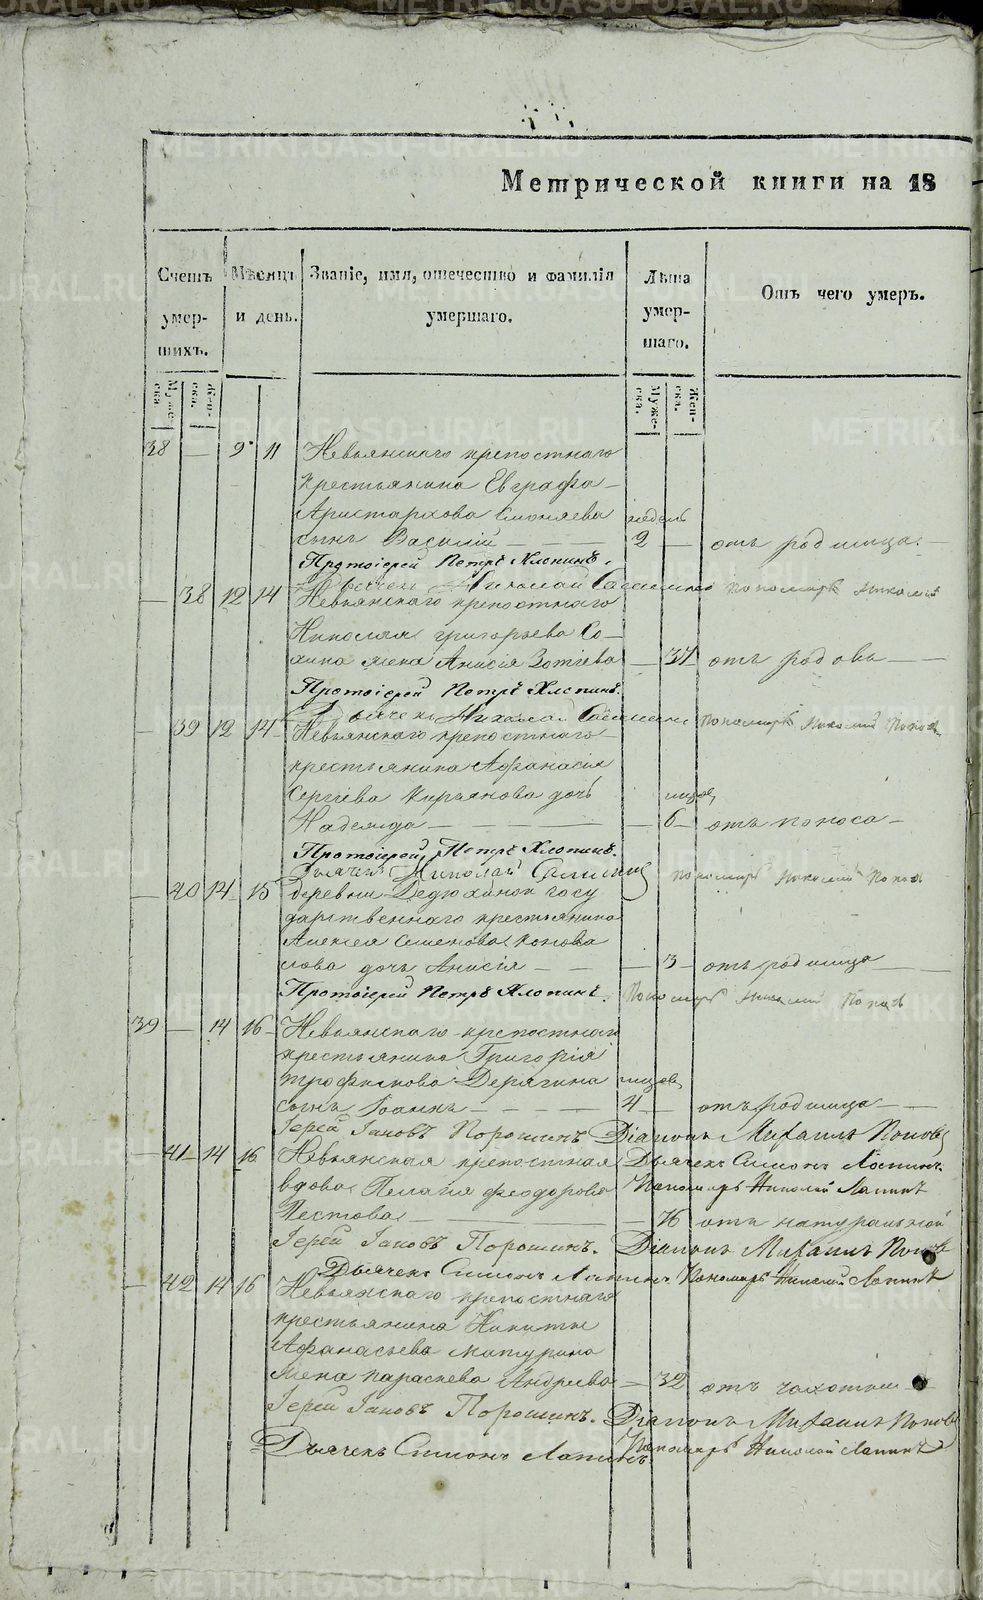 Метрической книги на 18
Счетъ умер-шихъ.
Мѣсяцъ и день.
Званіе, имя, отечество и фамилія умершаго.
Лѣта умер-шаго.
Отъ чего умеръ.
Муже-ска.
Жен-ска.
Муже-ска.
Жен-ска.
38 — 9 11 Невьянскаго крепостнаго
крестьянина Евграфа
Аристархова недель
сынъ Василій — 2 — отъ родимца —
Протоіерей Петръ Хлопинъ.
Дьячекъ Пономарь Николай
— 38 12 14 Невьянскаго крепостнаго
Николая Григорьева Со-
хина жена Анисія Зотіева — 37 отъ родовъ —
Протоіерей Петръ Хлопинъ.
Дьячекъ Пономарь Николай Поповъ
— 39 12 14 Невьянскаго крепостнаго
крестьянина Афанасія
Сергіева Кирьянова дочь мѣсяц.
Надежда — 6 — отъ поноса —
Протоіерей Петръ Хлопинъ.
Дьячекъ Николай Пономарь Николай Поповъ
— 40 14 15 деревни Дедюхиной госу
дарственнаго крестьянина
Алексея Семенова Конова
лова дочь Анисія — 3 — отъ родимца —
Протоіерей Петръ Хлопинъ. Пономарь Николай Поповъ
39 — 14 16 Невьянскаго крепостнаго
крестьянина Григорія
Трофимова Дерягина мѣсяц.
сынъ Іоаннъ — 4 — отъ родимца —
Іерей Іаковъ Порошинъ Діаконъ Михаилъ Поповъ
— 41 14 16 Невьянская крепостная Дьячекъ Симонъ Лапинъ.
вдова Пелагія Феодорова Пономарь Николай Лапинъ
Пестова — 76 отъ натуральной
Іерей Іаковъ Порошинъ. Діаконъ Михаилъ Поповъ
Дьячекъ Симонъ Лапинъ Пономарь Николай Лапинъ
— 42 14 16 Невьянскаго крепостнаго
крестьянина Никиты
Афанасьева Матурина
жена Параскева Андреева — 32 отъ чахотки —
Іерей Іаковъ Порошинъ. Діаконъ Михаилъ Поповъ
Дьячекъ Симонъ Лапинъ. Пономарь Николай Лапинъ
METRIKI.GASO-URAL.RU